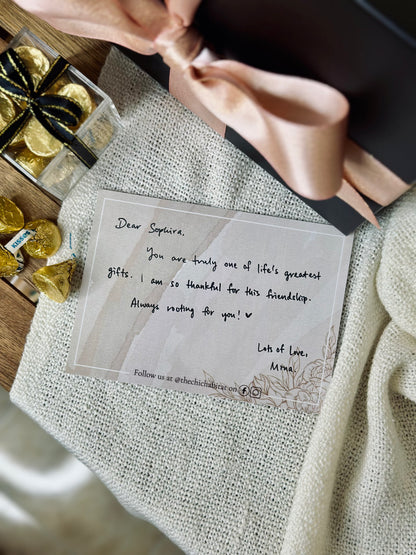 Dear Sophira,
You are truly one of life's greatest
gifts. I am so thankful for this friendship.
Always rooting for you!
Lots of Love,
Mrna
Follow us at @thechichabitat on
KISSES